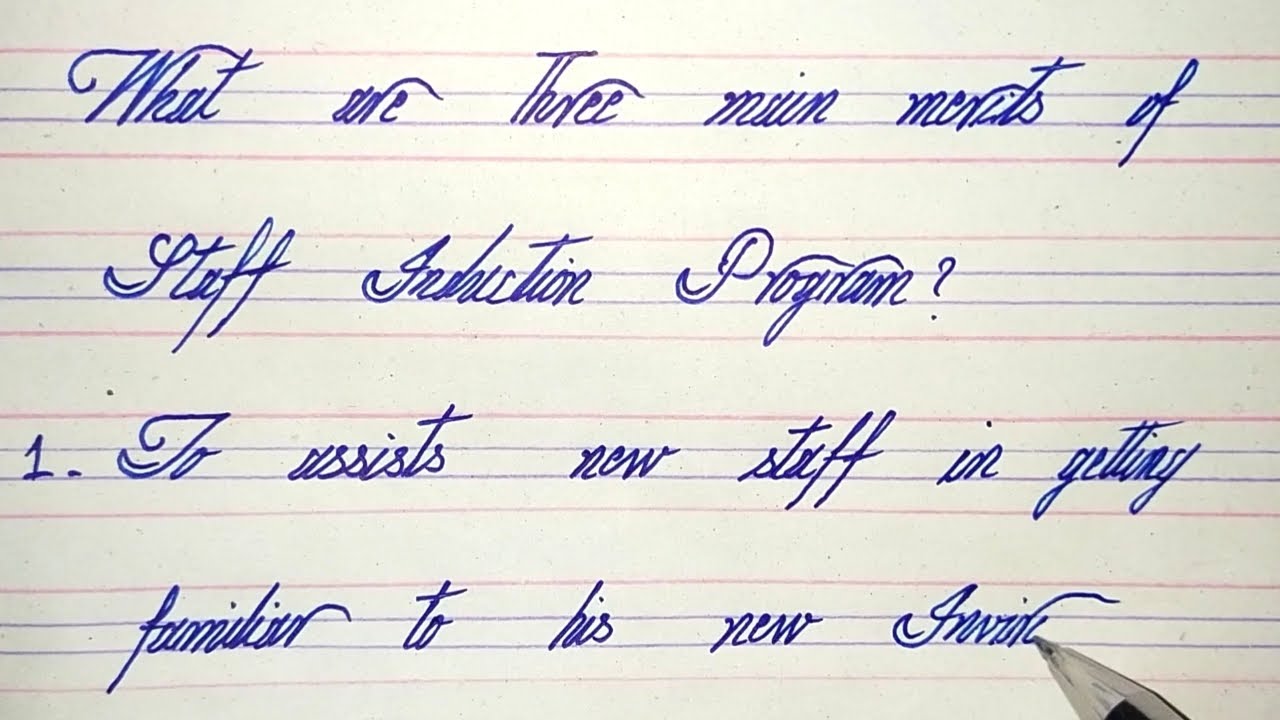 What are Three main merits of
Staff Induction Program?
1. To assists new staff in getting
familiar to his new